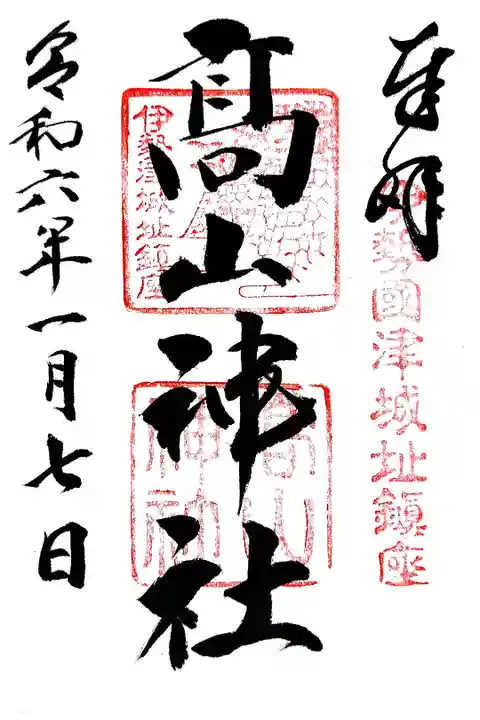 奉拝
伊勢國津城址鎮座
髙山神社
伊勢津城址鎮座
高山神社
令和六年一月七日